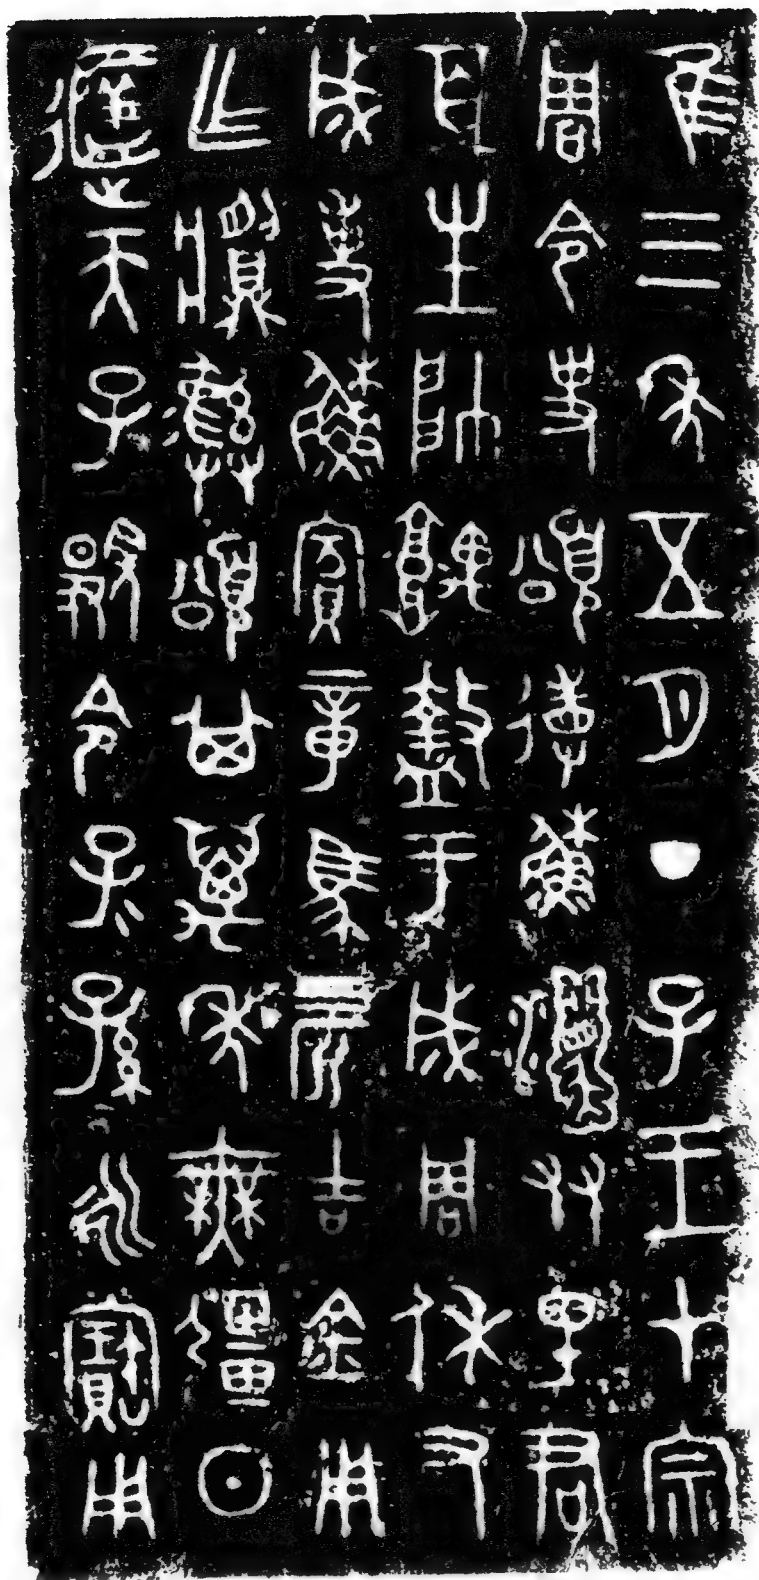 隹三年五月丁子王才宗
周令史頌省穌𤅊友里君
百生帥𩛥盩于成周休又
成事穌賓章馬四匹吉金用
乍䵼彝頌其萬年無疆日
𨒙天子顯令子=孫=永寶用